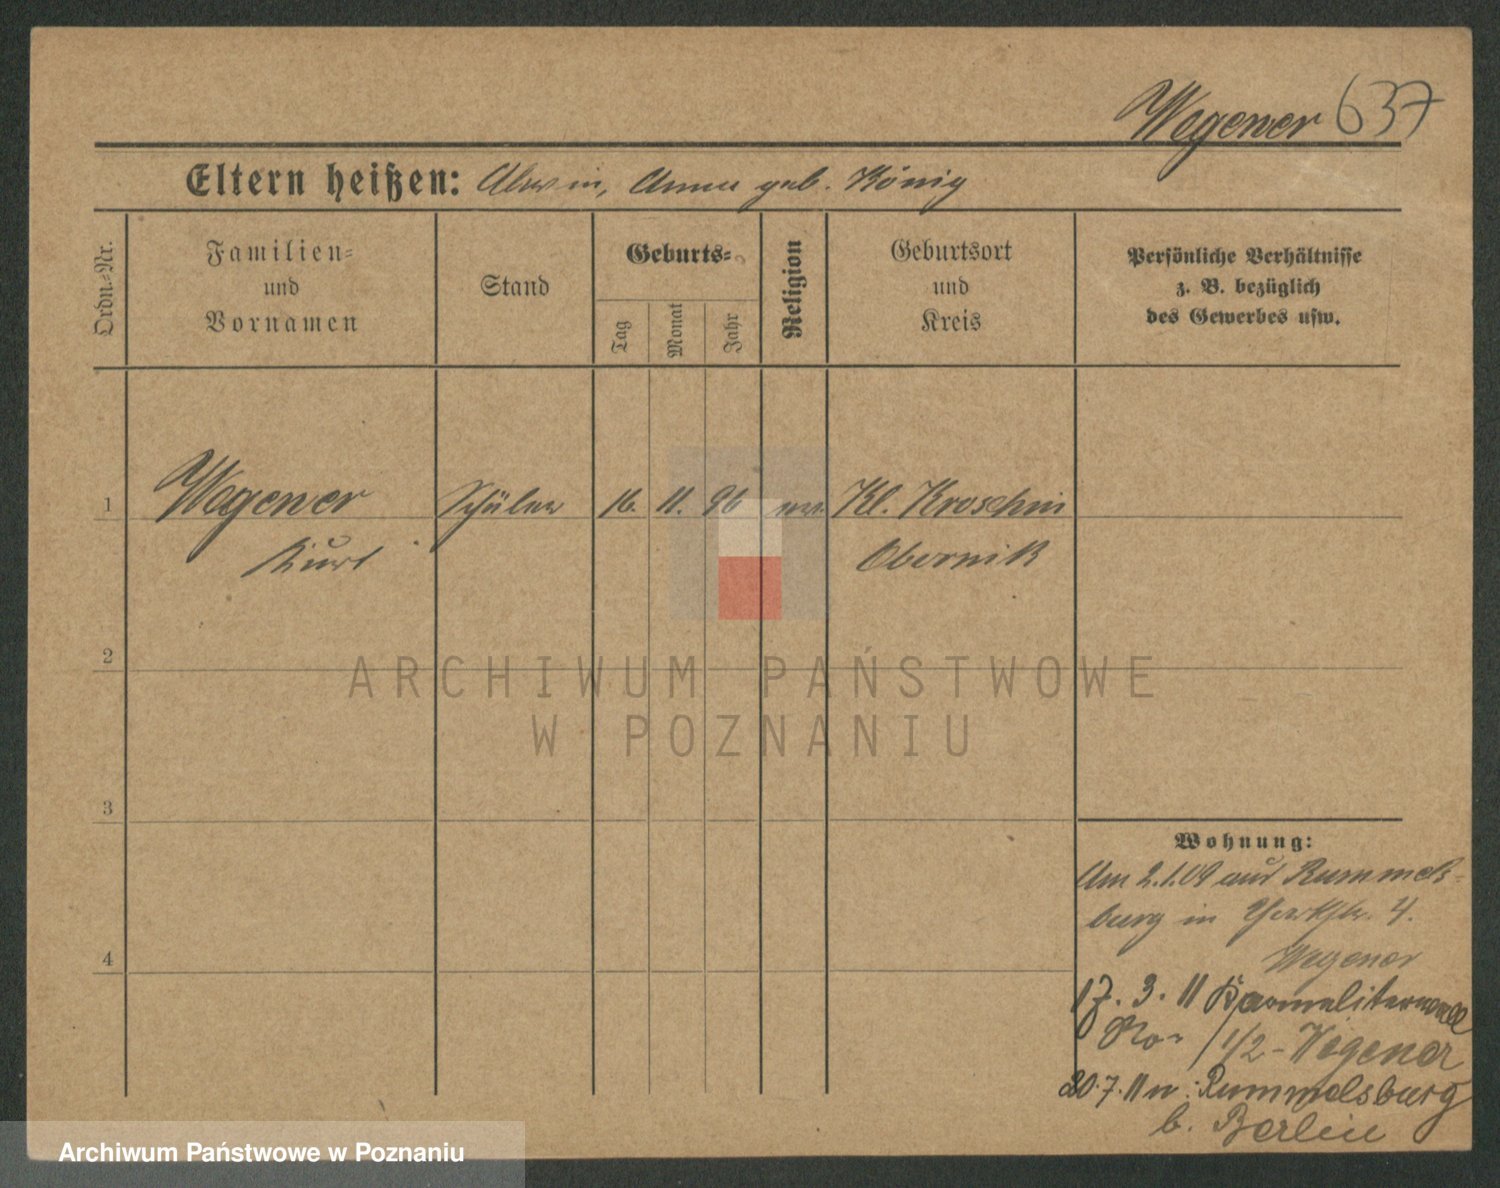 Wegener 637
Eltern heißen: Alwin, Anna geb. König
Ordn.-Nr.
Familien-
und
Vornamen
Stand
Geburts-
Tag
Monat
Jahr
Religion
Geburtsort
und
Kreis
Persönliche Verhältnisse
z. B. bezüglich
des Gewerbes usw.
1 Wegener Schüler 16. 11. 96 ev. Kl. Kroschin
Kurt Obernik
2
3
4
Wohnung:
Am 2.1.09 aus Rummels-
burg in 4.
Wegener
17. 3. 11
1/2 - Wegener
20. 7. 11 n. Rummelsburg
b. Berlin
ARCHIWUM PAŃSTWOWE
W POZNANIU
Archiwum Państwowe w Poznaniu